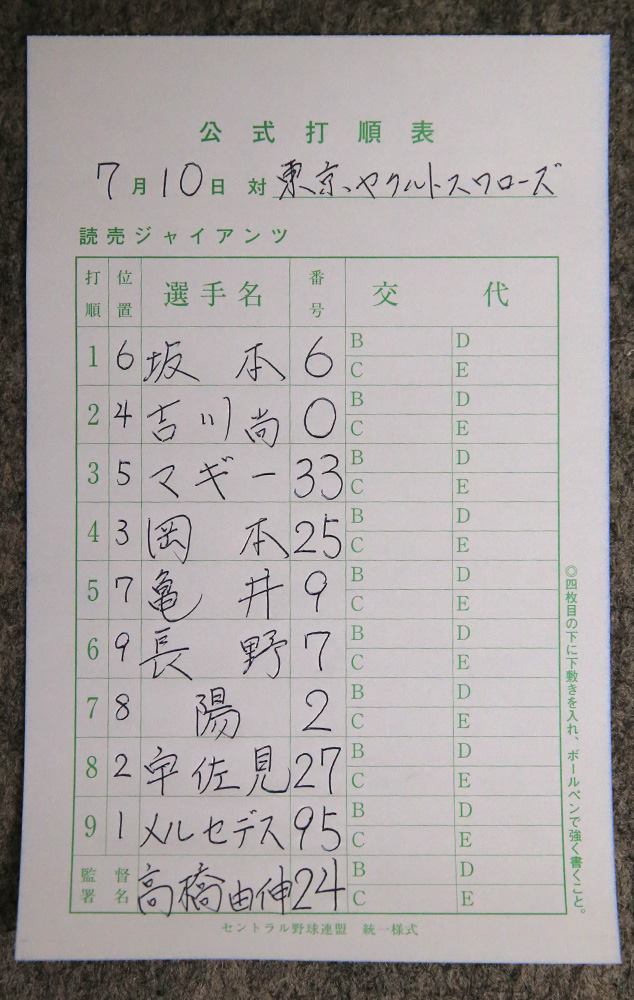 公式打順表
7月10日 対 東京ヤクルトスワローズ
読売ジャイアンツ
打順 位置 選手名 番号 交代
1 6 坂本 6 B D C E
2 4 吉川尚 0 B D C E
3 5 マギー 33 B D C E
4 3 岡本 25 B D C E
5 7 亀井 9 B D C E
6 9 長野 7 B D C E
7 8 陽 2 B D C E
8 2 宇佐見 27 B D C E
9 1 メルセデス 95 B D C E
監督署名 高橋由伸 24 B D C E
◎四枚目の下に下敷きを入れ、ボールペンで強く書くこと。
セントラル野球連盟 統一様式